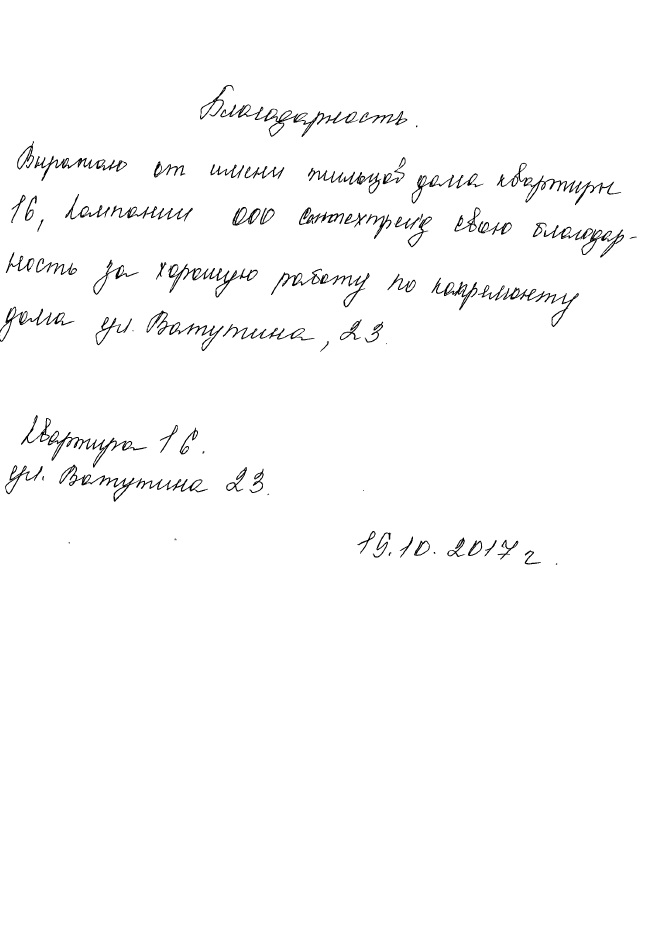 Благодарность.
Выражаю от имени жильцов дома квартиры
16, Компании ООО сантехтрейд свою благодар-
ность за хорошую работу по капремонту
дома ул. Ватутина, 23.
Квартира 16.
ул. Ватутина 23.
15.10.2017 г.